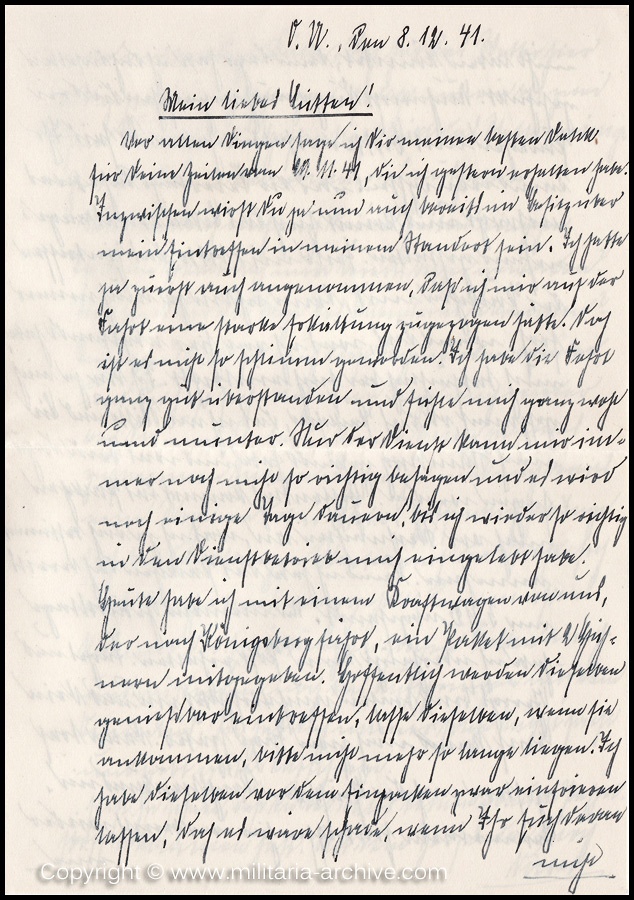 O. U., den 8.12.41.
Mein liebes Frauchen!
Vor allen Dingen sage ich Dir meinen besten Dank
für Deine Zeilen vom 29.11.41, die ich gestern erhalten habe.
Inzwischen wirst Du ja nun auch bereits im Besitz über
mein Eintreffen in meinem Standort sein. Ich hatte
ja zuerst auch angenommen, daß ich mir auf der
Fahrt eine starke Erkältung zugezogen hätte. Doch
ist es nicht so schlimm geworden. Ich habe die Fahrt
ganz gut überstanden und fühle mich ganz wohl
und munter. Nur der Dienst kann mir im-
mer noch nicht so richtig behagen und es wird
noch einige Tage dauern, bis ich wieder so richtig
in den Dienstbetrieb mich eingelebt habe.
Heute habe ich mit einem Kraftwagen von uns,
der nach Königsberg fährt, ein Paket mit 2 Hüh-
nern mitgegeben. Hoffentlich werden dieselben
genießbar eintreffen, lasse dieselben, wenn sie
ankommen, bitte nicht mehr so lange liegen. Ich
habe dieselben vor dem Einpacken zwar einfrieren
lassen, doch es wäre schade, wenn Ihr Euch daran
nicht
Copyright © www.militaria-archive.com